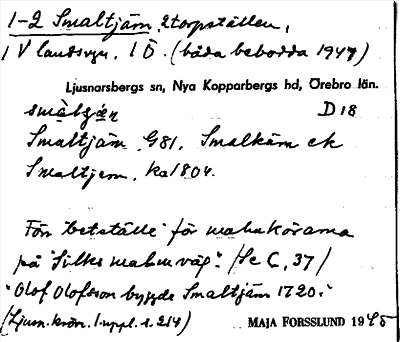 1-2 Smaltjärn, 2 torpställen,
1 V landsvn. 1 Ö. (båda bebodda 1947)
Ljusnarsbergs sn, Nya Kopparbergs hd, Örebro län.
småltjän D 18
Smaltjärn G81. Smalkärn ek
Smaltjern, ka 1804.
Förr "betställe" för malmkörarna
på "Silkes malmväg". (Se C, 37)
"Olof Olofsson byggde Smaltjärn 1720."
(Ljusn. krön. 1 uppl. s. 214) MAJA FORSSLUND 1945